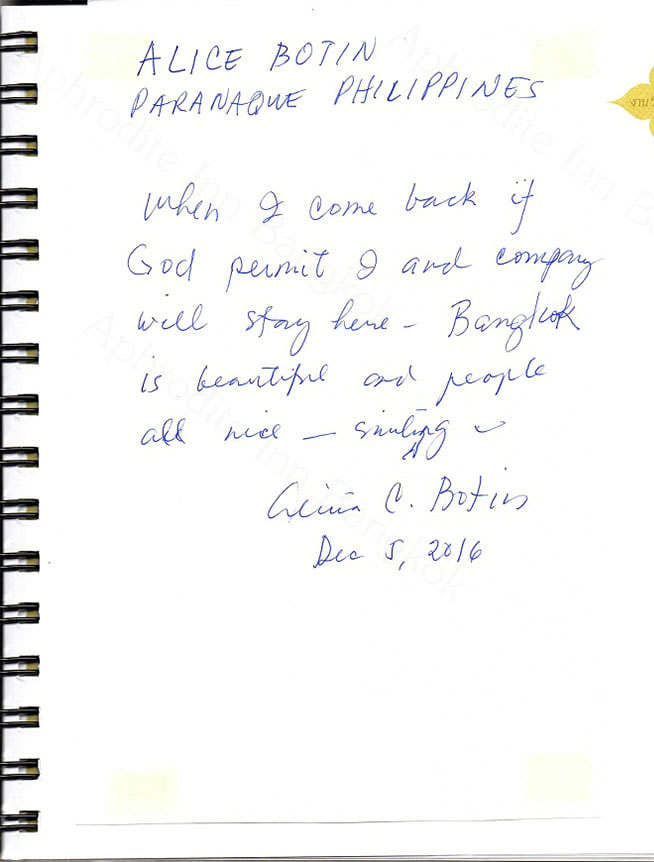 ALICE BOTIN
PARANAQUE PHILIPPINES
When I come back if
God permit I and company
will stay here - Bangkok
is beautiful and people
all nice — smiling
C. Botin
Dec 5, 2016
Aphrodite Inn Bangkok
Aphrodite Inn Bangkok